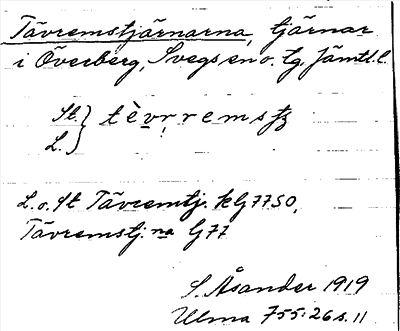 Tävremstjärnarna, tjärnar
i Överberg, Svegs en o. tg, Jämtl. l.
St. } tèvr̥remstʒ
L. }
L. o. St Tävremtj. k G7750,
Tävremstj:na G77
S. Åsander 1919
Ulma 755:26 s. 11